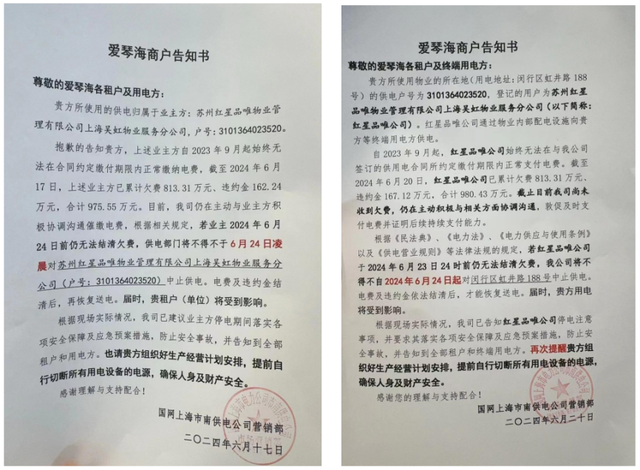 爱琴海商户告知书
尊敬的爱琴海各租户及用电方：
贵方所使用的供电归属于业主方：苏州红星品唯物业管
理有限公司上海吴虹物业服务分公司，户号：3101364023520。
抱歉的告知贵方，上述业主方自 2023 年 9 月起始终无
法在合同约定缴费期限内正常缴纳电费，截至 2024 年 6 月
17 日，上述业主方已累计欠费 813.31 万元、违约金 162.24
万元，合计 975.55 万元。目前，我司仍在主动与业主方积极
催缴协调沟通催缴电费，根据相关规定，若业主 2024 年 6 月
24 日前仍无法结清欠费，供电部门将不得不于 6 月 24 日凌
晨对苏州红星品唯物业管理有限公司上海吴虹物业服务分
公司（户号：3101364023520）中止供电。电费及违约金结
清后，再恢复送电。届时，贵租户（单位）将受到影响。
根据现场实际情况，我司已建议业主方停电期间落实各
项安全保障及应急预案措施，防止安全事故，并告知到全部
租户和用电方。也请贵方组织好生产经营计划安排，提前自
行切断所有用电设备的电源，确保人身及财产安全。
感谢理解与支持配合！
国网上海市南供电公司营销部
二〇二四年六月十七日
爱琴海商户告知书
尊敬的爱琴海各租户及终端用电方：
贵方所使用物业的所在地（用电地址：闵行区虹井路 188
号）的供电户号为 3101364023520，登记的用户为苏州红星品
唯物业管理有限公司上海吴虹物业服务分公司（以下简称：
红星品唯公司）。红星品唯公司通过物业内部配电设施向贵
方等终端用电方供电。
自 2023 年 9 月起，红星品唯公司始终无法在与我公司
签订的供用电合同所约定缴费期限内正常支付电费。截至
2024 年 6 月 20 日，红星品唯公司已累计欠费 813.31 万元、
违约金 167.12 万元，合计 980.43 万元。截止目前我司尚未
收到欠费，仍在主动积极与相关方面协调沟通，敦促及时支
付电费并证明后续持续支付能力。
根据《民法典》、《电力法》、《电力供应与使用条例》
以及《供电营业规则》等法律法规的规定，若红星品唯公司
于 2024 年 6 月 23 日 24 时前仍无法结清欠费，我公司将不
得不自2024 年 6 月 24 日起对闵行区虹井路 188 号中止供电。
电费及违约金依法结清后，才能恢复送电。届时，贵方用电
将受到影响。
根据现场实际情况，我司已告知红星品唯公司停电注意
事项，并要求其落实各项安全保障及应急预案措施，防止安
全事故，并告知到全部租户和终端用电方。再次提醒贵方组
织好生产经营计划安排，提前自行切断所有用电设备的电源，
确保人身及财产安全。
感谢您的理解与支持配合！
国网上海市南供电公司营销部
二〇二四年六月二十日